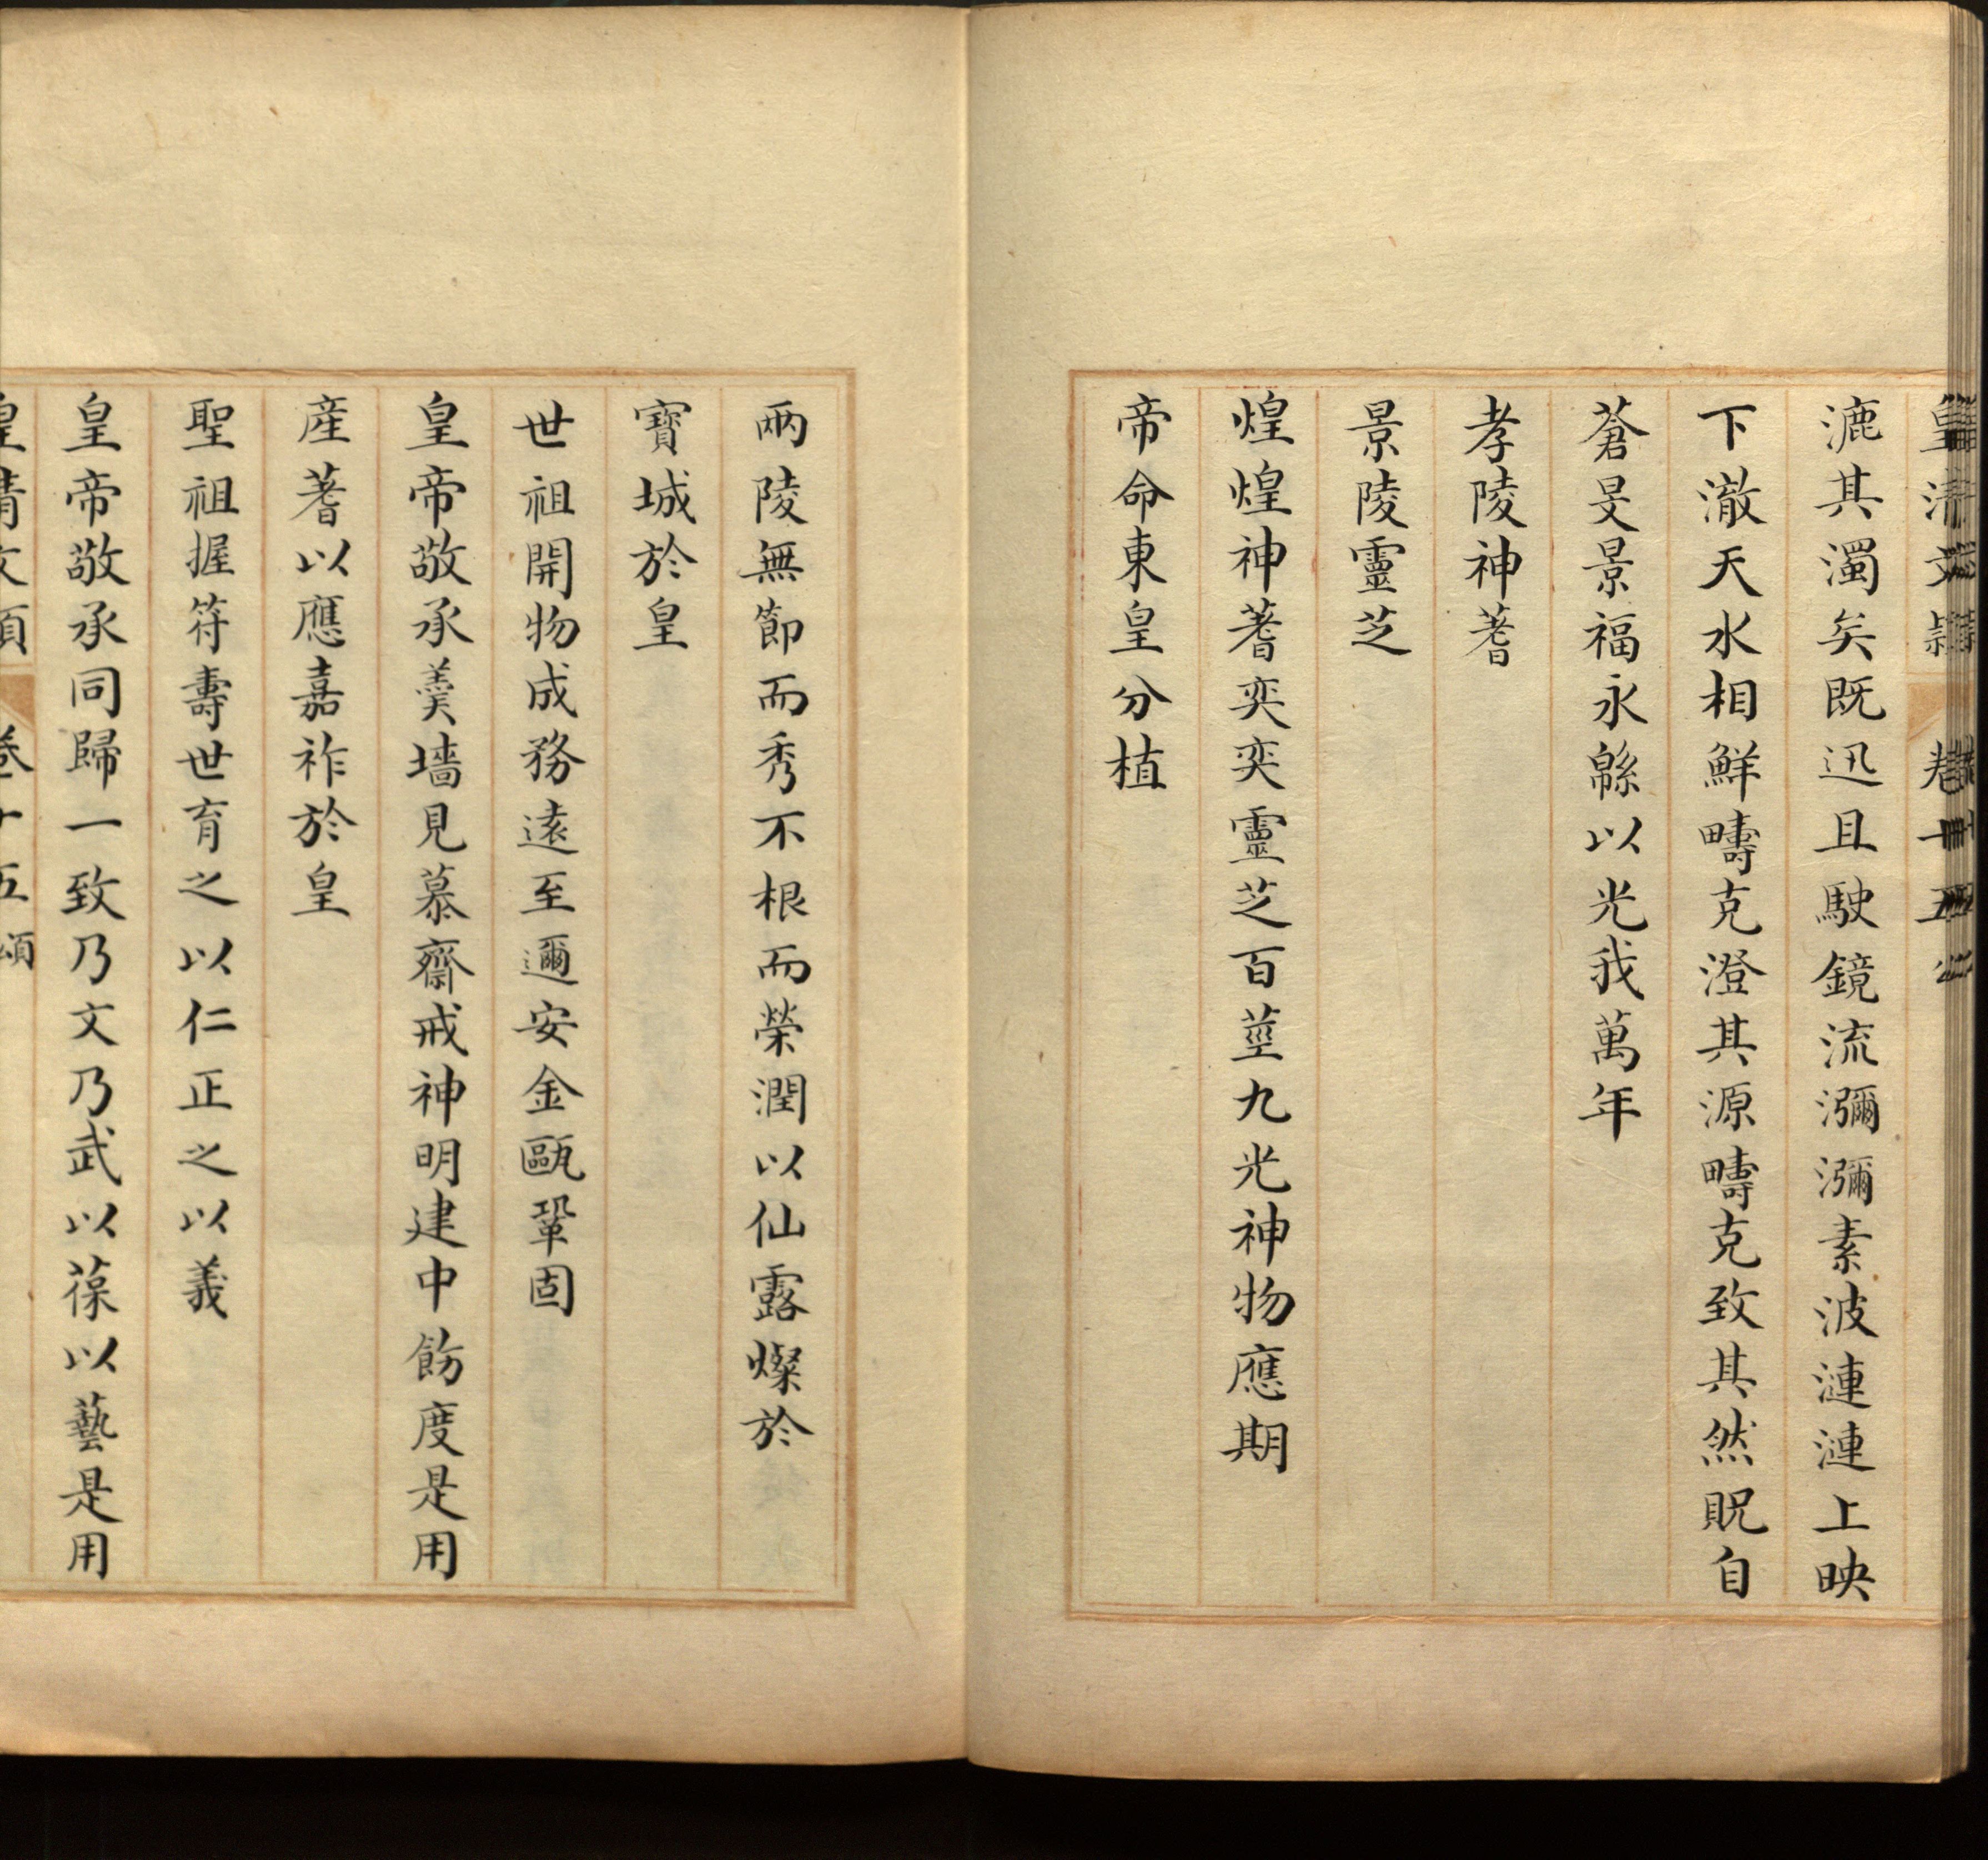 皇清文穎 卷十五
漉其濁矣既迅且駛鏡流瀰瀰素波漣漣上映
下澈天水相鮮疇克澄其源疇克致其然貺自
蒼旻景福永緜以光我萬年
孝陵神蓍
景陵靈芝
煌煌神蓍奕奕靈芝百莖九光神物應期
帝命東皇分植
兩陵無節而秀不根而榮潤以仙露燦於
寳城於皇
世祖開物成務逺至邇安金甌鞏固
皇帝敬承羹墻見慕齋戒神明建中飭度是用
産蓍以應嘉祚於皇
聖祖握符壽世育之以仁正之以義
皇帝敬承同歸一致乃文乃武以葆以藝是用
皇清文穎 卷十五 頌